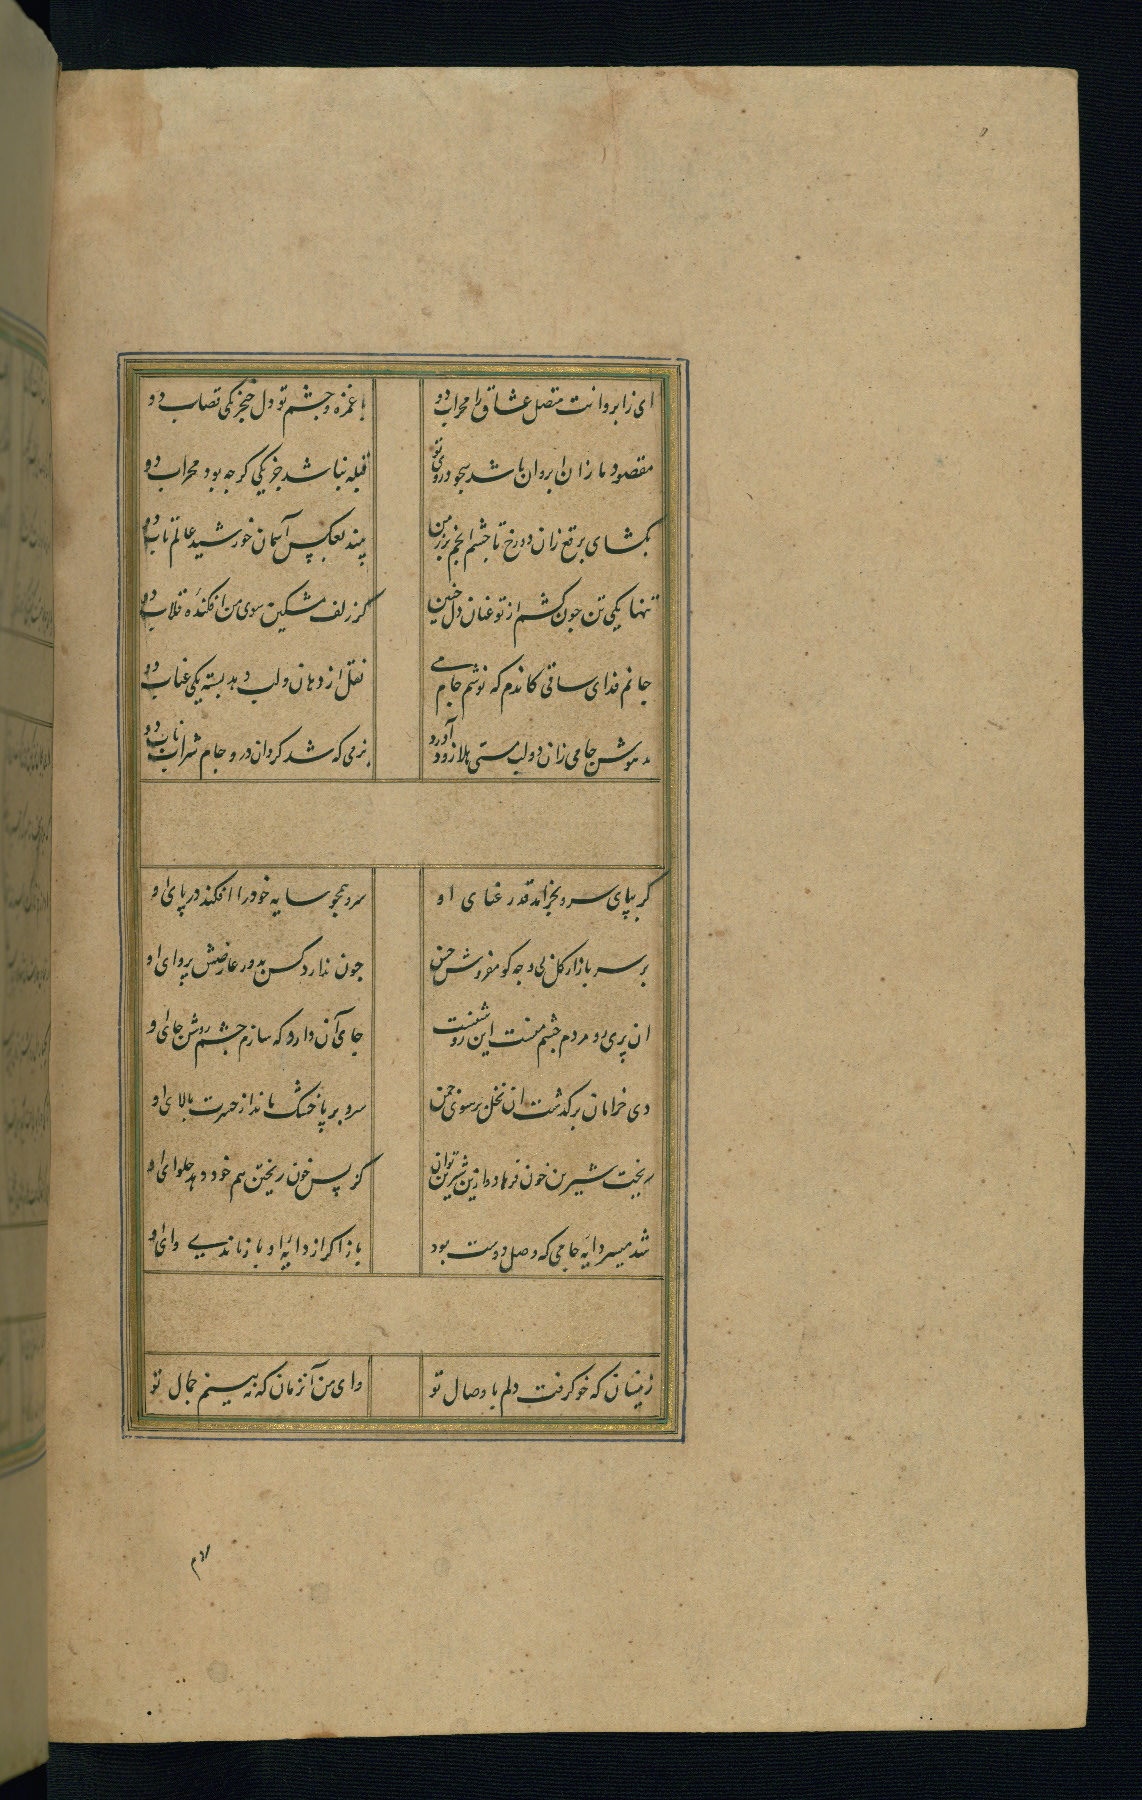 ای ز ابروانت متصل عشاق را محراب دو با غمزه و چشم تو دل خنجر یکی قصاب دو
مقصود ما زان ابروان باشد سجود روی تو قبله نباشد جز یکی کر چه بود محراب دو
بکشای برقع زان دو رخ تا چشم انجم بر زمین بیند بعکس آسمان خورشید عالم تاب دو
تنها یکی تن چون کشم از تو عنان دل چنین کز زلف مشکین سوی من افکندهٔ قلاب دو
جانم فدای ساقی کاندم که نوشم جام می نقل از دهان و لب دهد پسته یکی عناب دو
مدهوش جامی زان دو لب مستی بلا زود آورد بزمی که شد کردان درو جام شراب ناب دو
کر بپای سرو بخرامد قد رعنای او سرو همچو سایه خود را افکند در پای او
بر سر بازار کل بی وجه کو مفروش حسن چون ندارد کس بدور عارضش پروای او
ان پری رو مردم چشم منست این روشنست جای آن دارد که سازم چشم روشن جای او
دی خرامان بر کذشت ان نخل تر سوی چمن سرو بر پا خشک ماند از حسرت بالای او
ریخت شیرین خون فرهاد و ازین شیرین توان کز پس خون ریختن هم خود دهد حلوای او
شد میسر دایهٔ جامی که وصل دوست بود باز اکر از دایهٔ او باز ماندی وای او
زینسان که خو کرفت دلم با وصال تو وای من آنزمان که نه بینم جمال تو